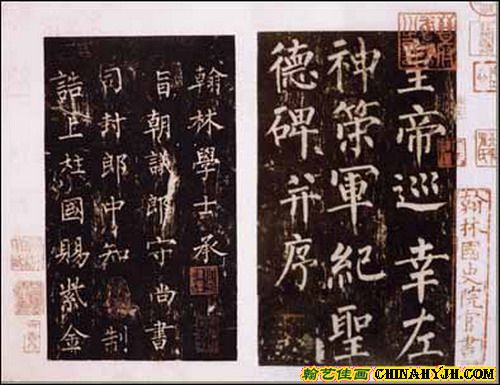 皇帝巡幸左
神策軍紀聖
德碑并序
翰林學士承
旨朝議郎守尚書
司封郎中知制
誥上柱國賜紫金
翰林國史院官書
翰艺佳画
CHINAHYJH.COM